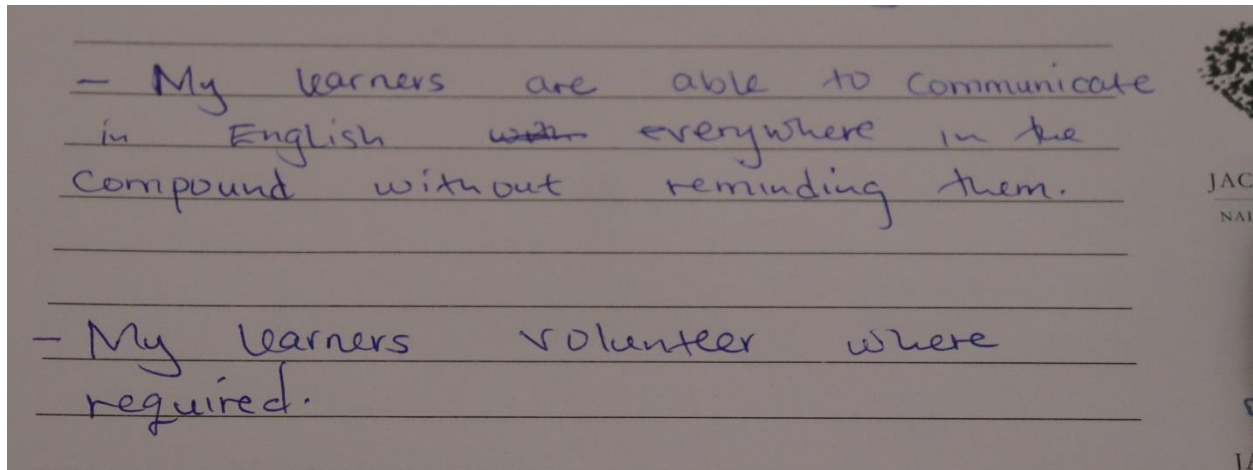 - My learners are able to communicate
in English everywhere in the
compound without reminding them.
- My learners volunteer where
required.
JAC
NAI